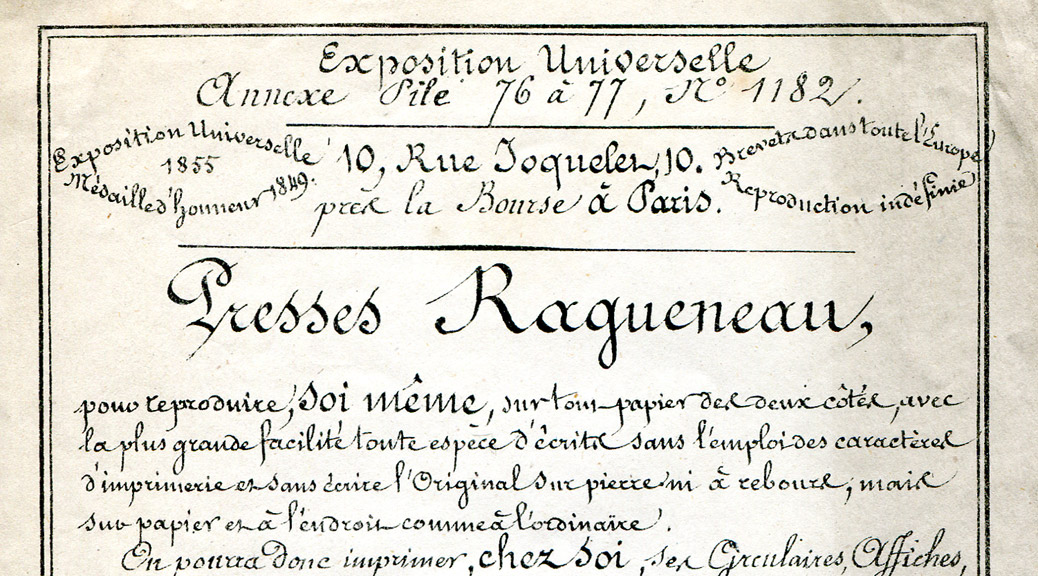 Exposition Universelle
Annexe Pile 76 à 77, N° 1182.
Exposition Universelle
1855
Médaille d'honneur 1849.
10, Rue Joquelet, 10.
près la Bourse à Paris.
Brevets dans toute l'Europe
Reproduction indéfinie
Presses Ragueneau,
pour reproduire, soi même, sur tout papier des deux côtés, avec
la plus grande facilité toute espèce d'écrits sans l'emploi des caractères
d'imprimerie et sans écrire l'Original sur pierre ni à rebours, mais
sur papier et à l'endroit comme à l'ordinaire.
On pourra donc imprimer, chez soi, ses Circulaires, Affiches,